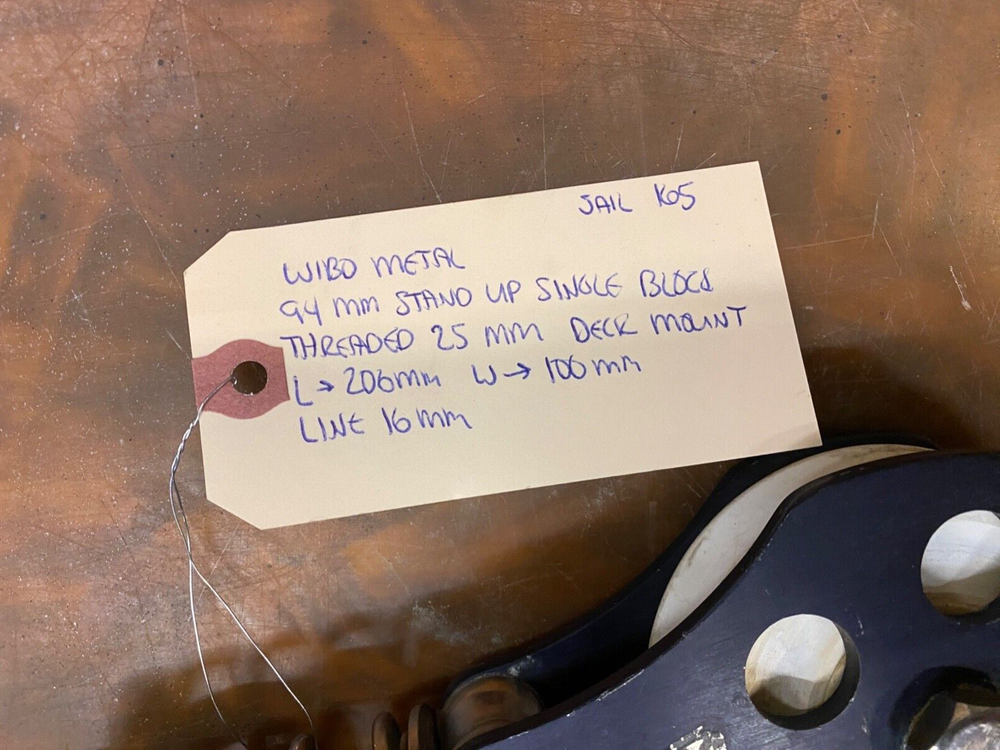 JAIL K05
WIBO METAL
94 MM STAND UP SINGLE BLOCK
THREADED 25 MM DECK MOUNT
L → 206MM W → 106MM
LINE 16MM